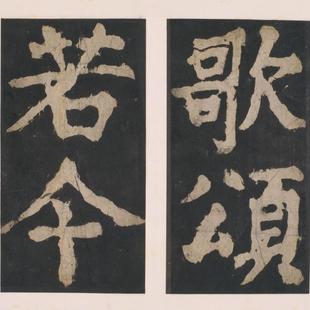 歌頌
若今